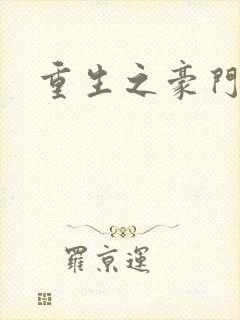 重生之豪門
羅京運